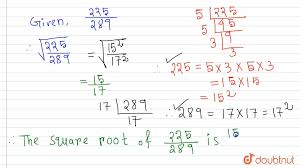 Given, 225/289
∴ √225/289 = √15²/17²
= 15/17
5 | 225
5 | 45
3 | 9
3
∴ 225 = 5×3×5×3
= 15×15
= 15²
17 | 289
17
∴ 289 = 17×17 = 17²
∴ The square root of 225/289 is 15
doubtnut